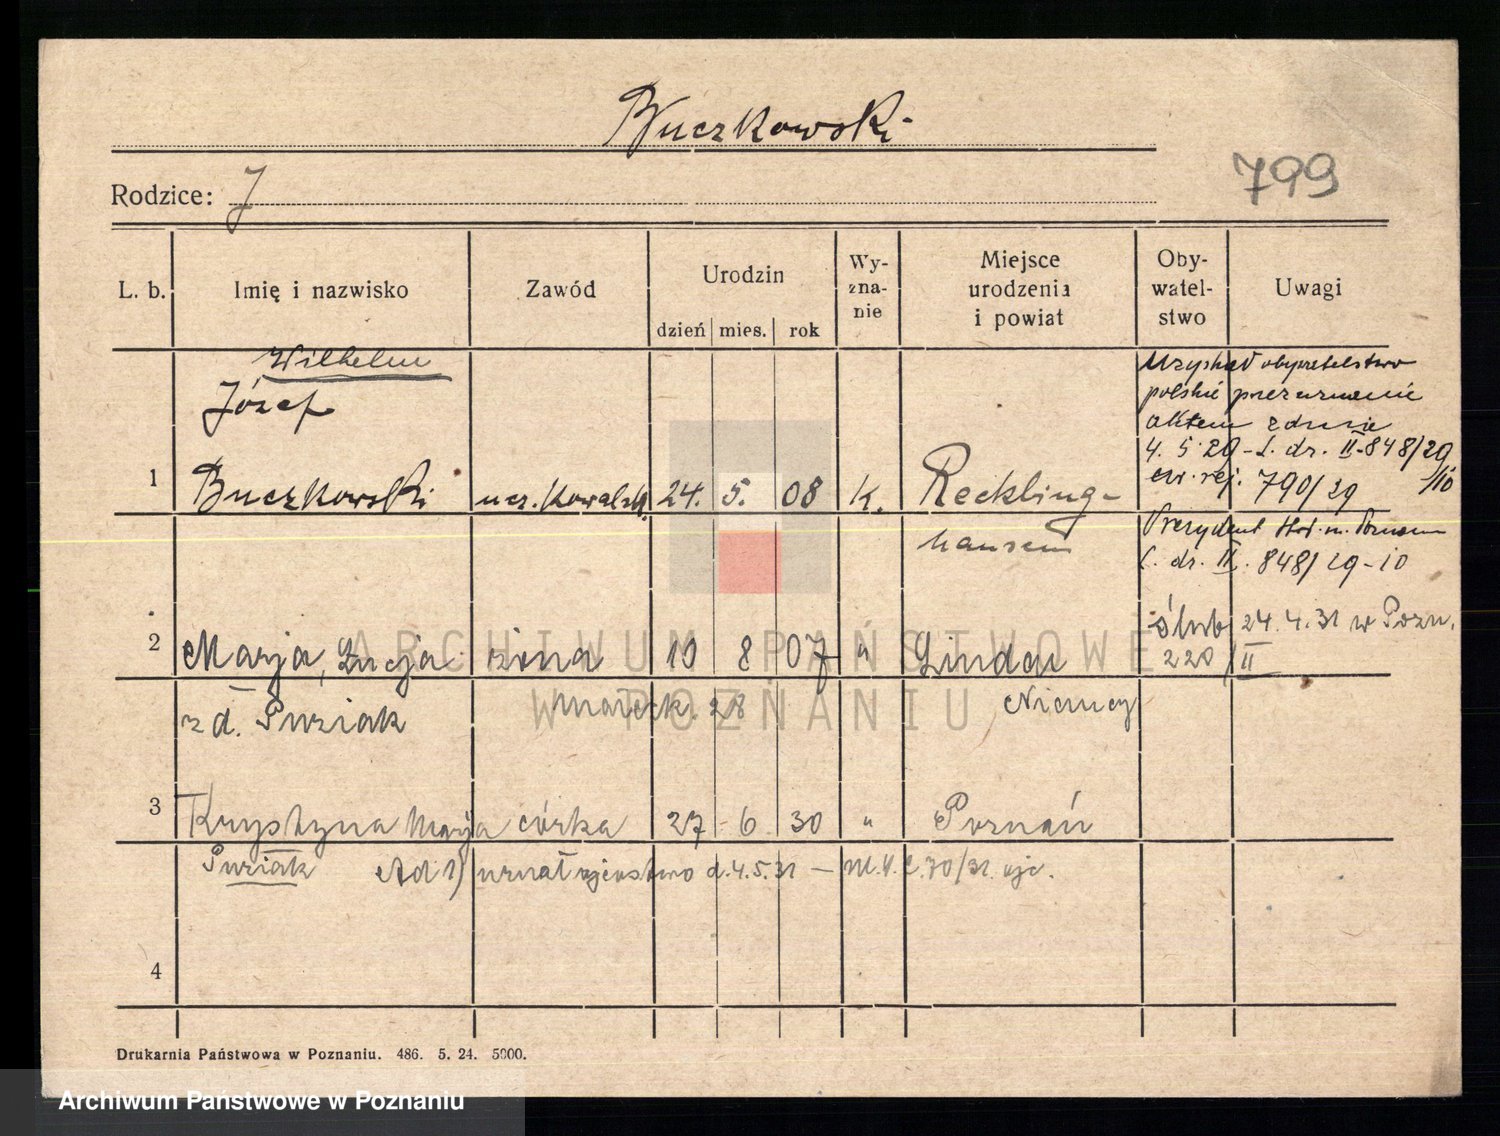 Buczkowski
799
Rodzice: J
L. b. Imię i nazwisko Zawód Urodzin dzień mies. rok Wy-zna-nie Miejsce urodzenia i powiat Oby-watel-stwo Uwagi
Wilhelm
Józef
1 Buczkowski ucz. kowalsk. 24. 5. 08 k. Reckling-
hausen
Uzyskał obywatelstwo
polskie
aktem
4. 5. 29 - L. dr. II-848/29
ew. rej. 790/29 /10
Prezydent Stoł. m. Poznania
L. dr. II. 848/29-10
ślub 24. 4. 31 w Pozn.
220/II
2 Marja, Łucja żona 10 8 07 " Linden
z d. Puziak 28 Niemcy
3 Krystyna Marja córka 27 6 30 " Poznań
Puziak Ad 1) uznał ojcostwo d. 4.5.31 — 70/31. ojc.
4
Drukarnia Państwowa w Poznaniu. 486. 5. 24. 5000.
ARCHIWUM PAŃSTWOWE
W POZNANIU
Archiwum Państwowe w Poznaniu